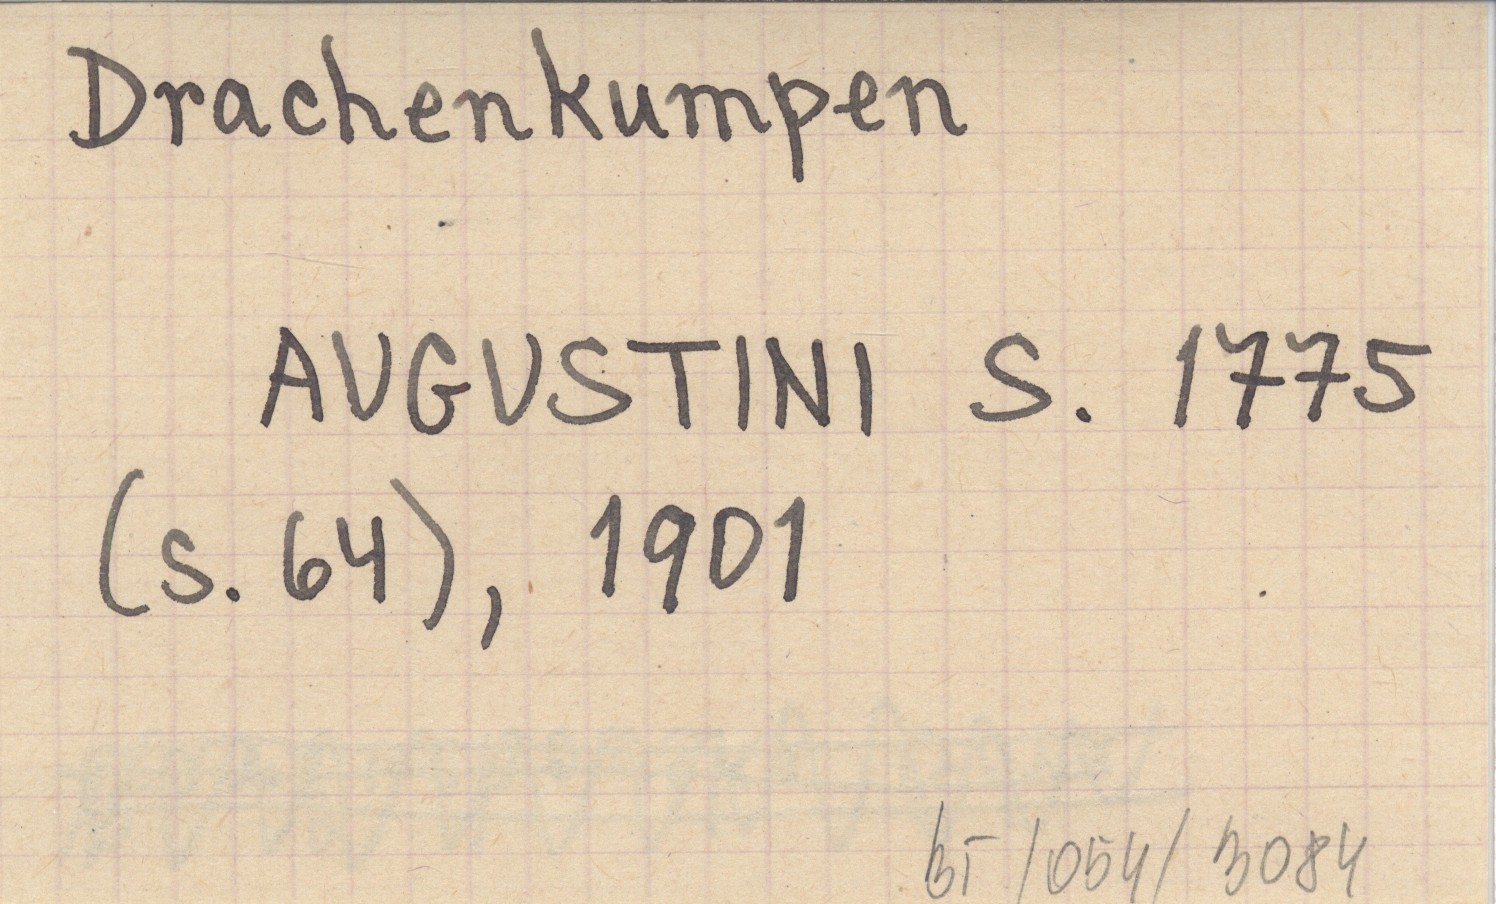 Drachenkumpen
AUGUSTINI S. 1775
(s. 64), 1901
BT /054/ 3084